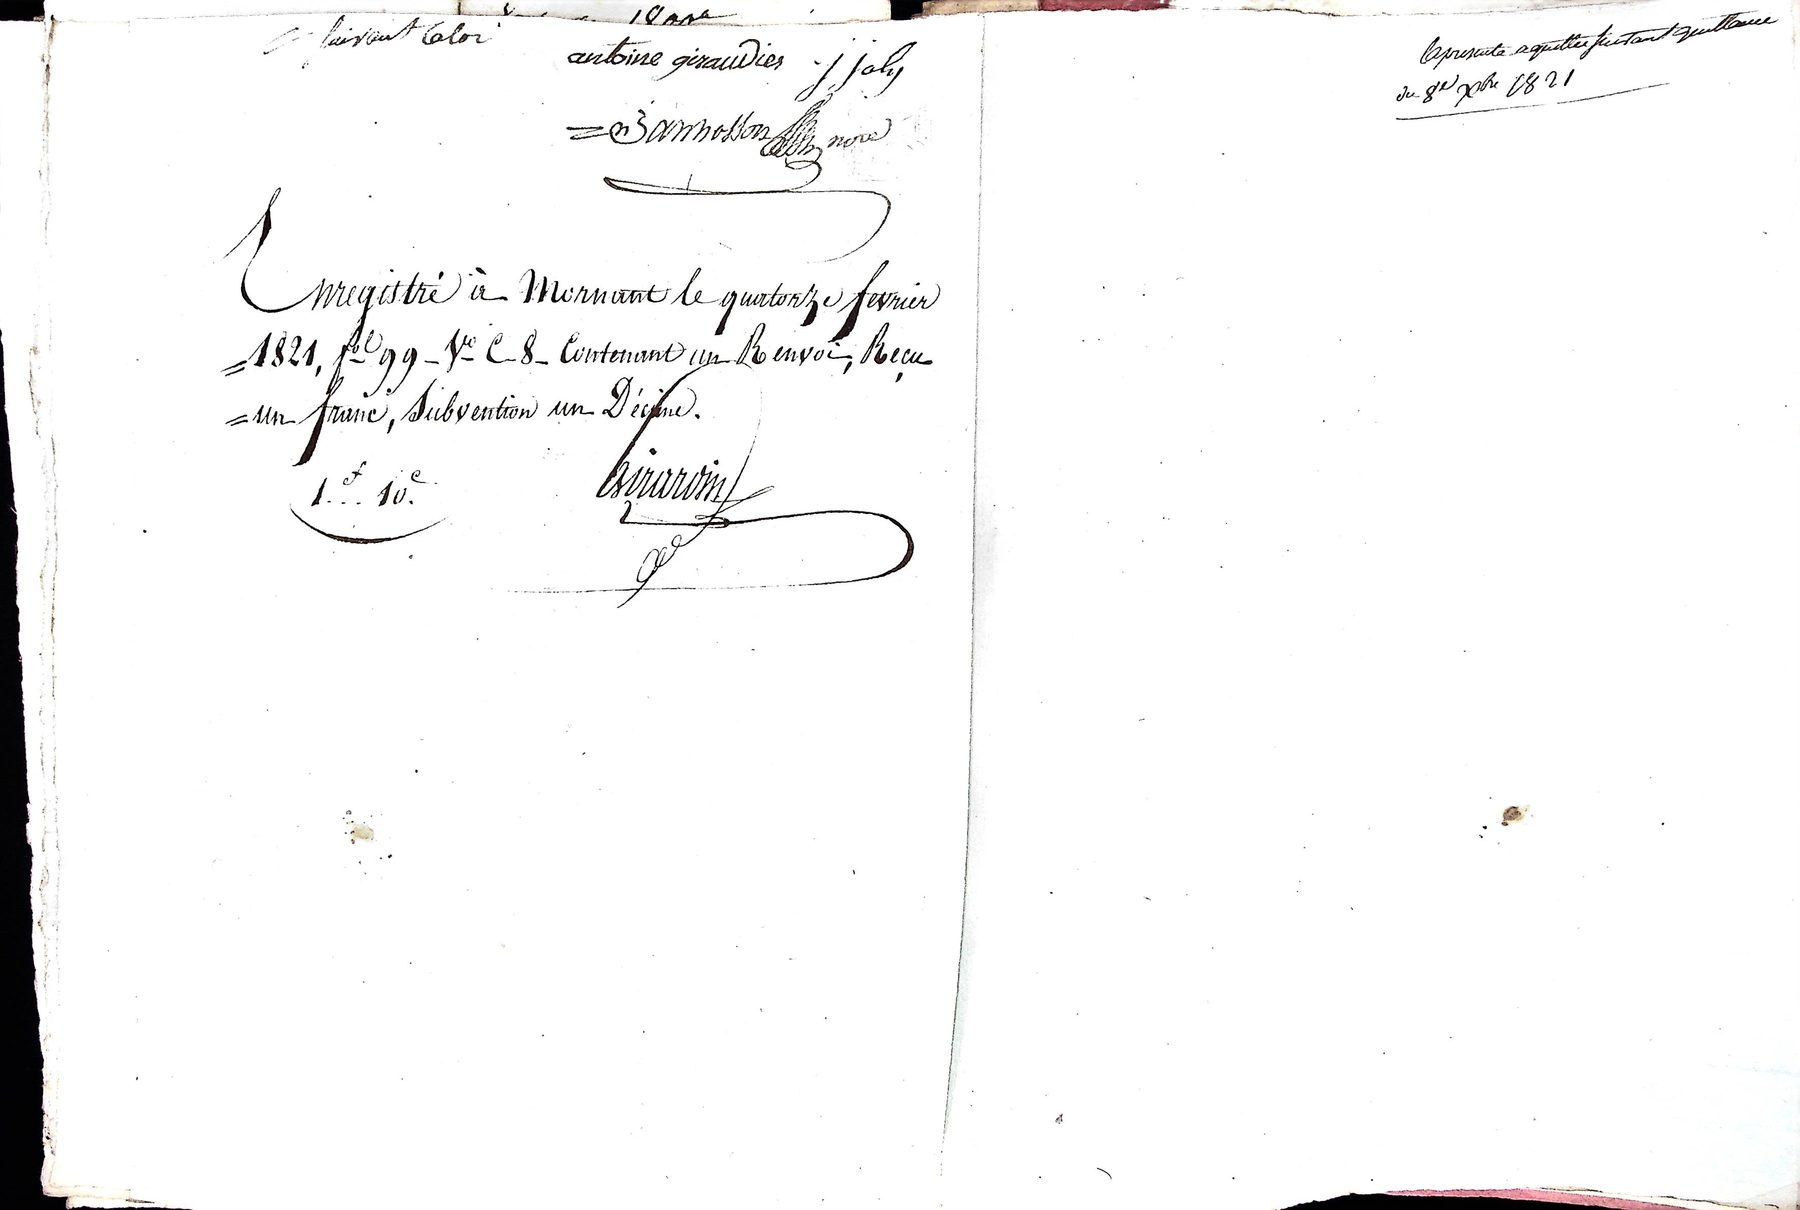 suivant la loi
antoine giraudier j joly
= Bannasson nore
Enregistré à Mornant le quatorze fevrier
= 1821, fol 99 Vo C 8 Contenant un Renvoi, Reçu
= un franc, Subvention un Décime.
1f 10c
Girardin
Le présente acquittée suivant quittance
du 8e Xbre 1821